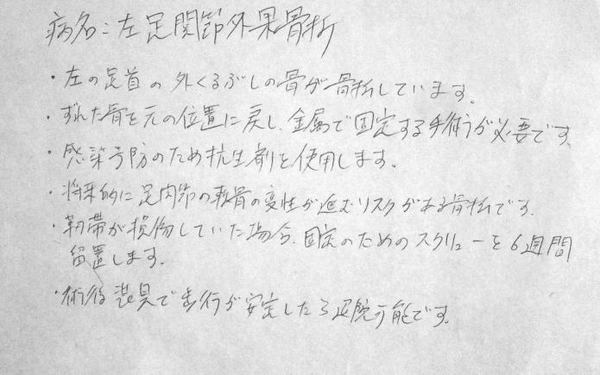 病名：左足関節外果骨折
・左の足首の外くるぶしの骨が骨折しています。
・ずれた骨を元の位置に戻し、金属で固定する手術が必要です。
・感染予防のため抗生剤を使用します。
・将来的に足内部の軟骨の変性が進むリスクがある骨折です。
・靭帯が損傷していた場合、固定のためのスクリューを6週間
留置します。
・術後装具で歩行が安定したら退院可能です。